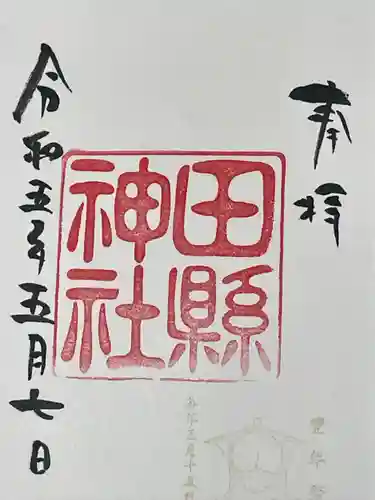 奉拝
田縣
神社
令和五年五月七日